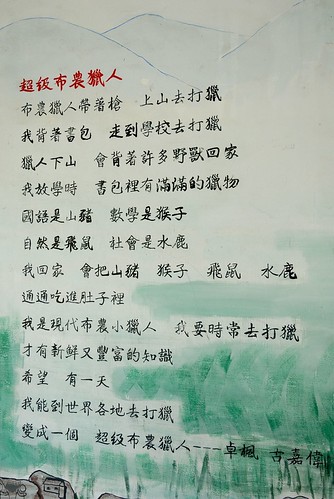 超级布農獵人
布農獵人帶著槍 上山去打獵
我背著書包 走到學校去打獵
獵人下山 會背著許多野獸回家
我放學時 書包裡有滿滿的獵物
國語是山豬 數學是猴子
自然是飛鼠 社會是水鹿
我回家 會把山豬 猴子 飛鼠 水鹿
通通吃進肚子裡
我是現代布農小獵人 我要時常去打獵
才有新鮮又豐富的知識
希望 有一天
我能到世界各地去打獵
變成一個 超级布農獵人---卓楓 古嘉偉